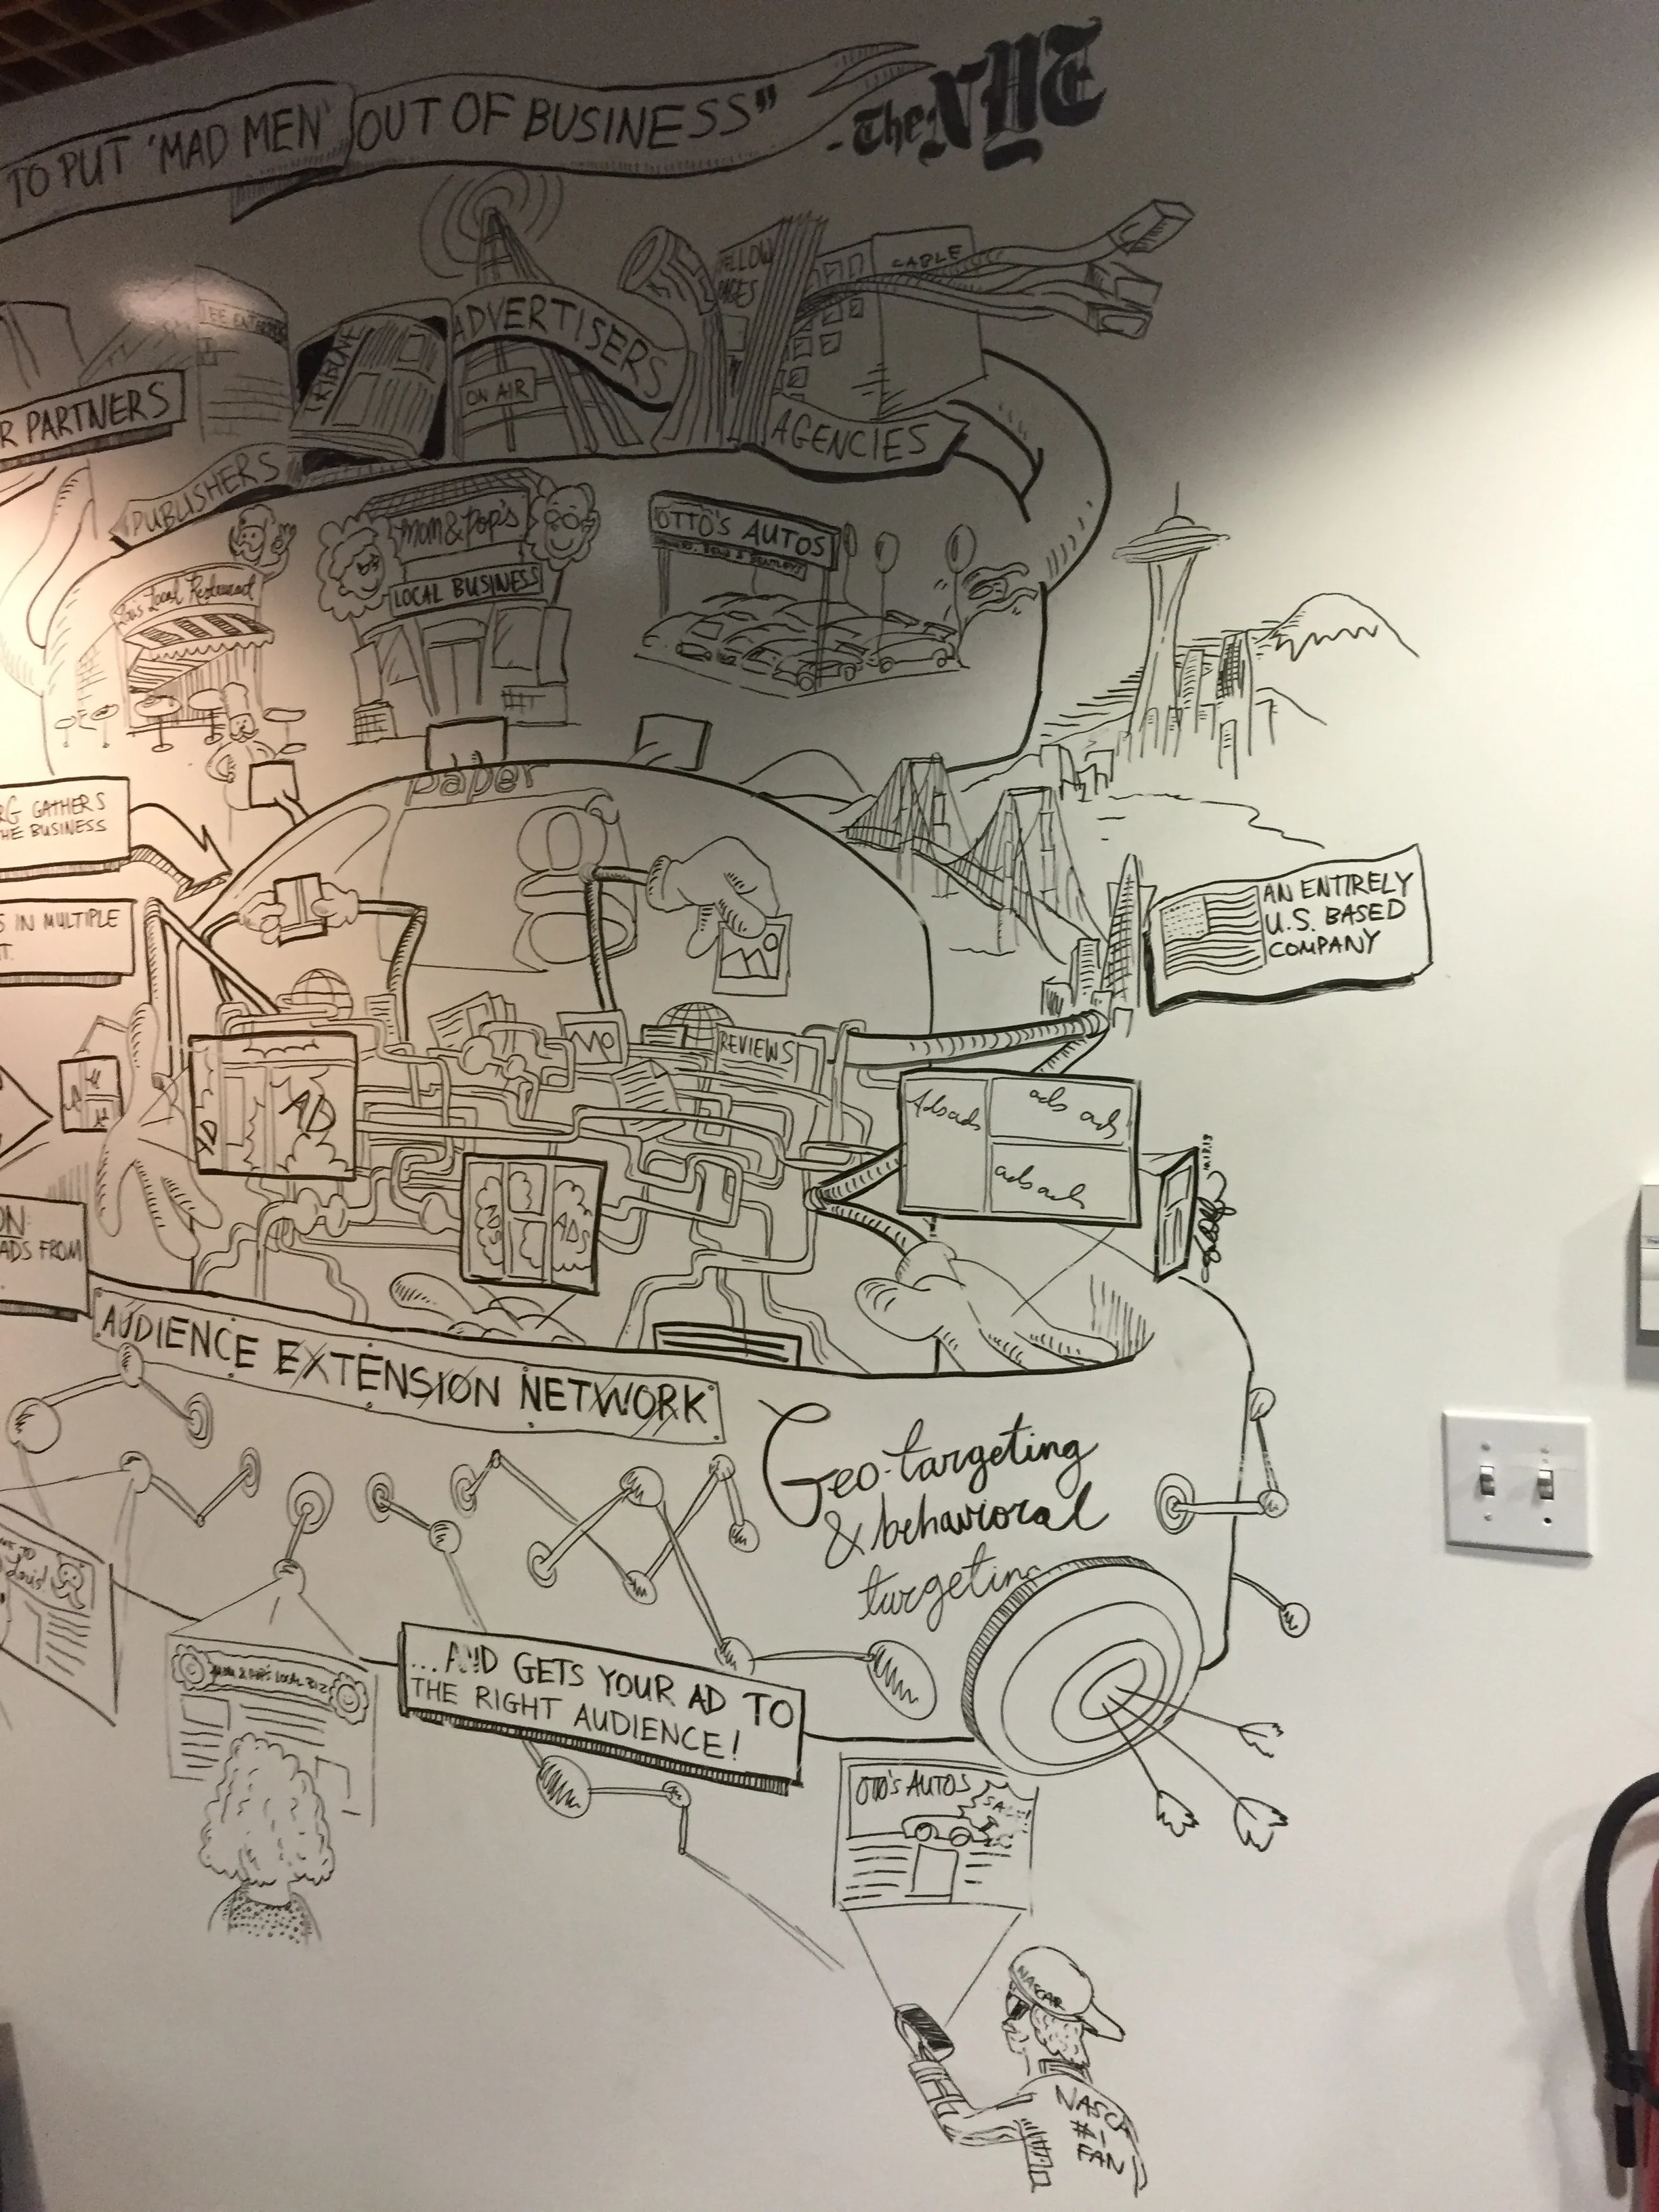 TO PUT 'MAD MEN' OUT OF BUSINESS"
- The NYT
CABLE
ADVERTISERS
ON AIR
TRIBUNE
R PARTNERS
AGENCIES
PUBLISHERS
Mom & Pop's
LOCAL BUSINESS
OTTO'S AUTOS
Local Restaurant
paper
RG GATHERS
HE BUSINESS
S IN MULTIPLE
T.
AN ENTIRELY
U.S. BASED
COMPANY
REVIEWS
AD
AD
Ads ads
ads ads
ads ads
ADS
ADS
ON:
ADS FROM
AUDIENCE EXTENSION NETWORK
Geo-targeting
& behavioral
targeting
Louis!
MOM & POP'S LOCAL BIZ
...AND GETS YOUR AD TO
THE RIGHT AUDIENCE!
OTTO'S AUTOS
SALE!
NASCAR
NASCA
#1
FAN